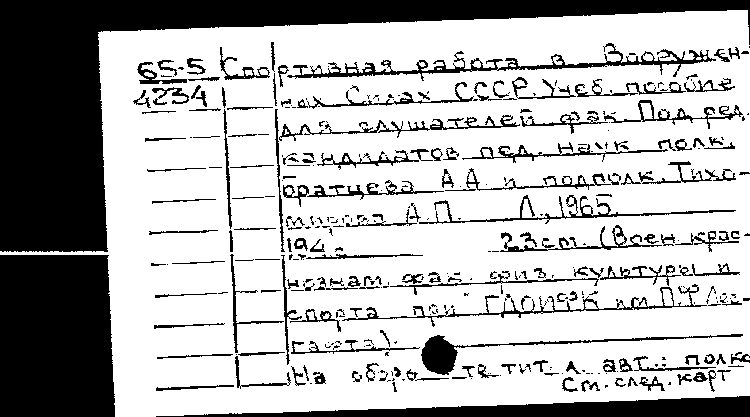 65-5 Спортивная работа в Вооружен-
4234 ных Силах СССР. Учеб. пособие
для слушателей фак. Под ред.
кандидатов пед. наук полк.
Братцева А.А. и подполк. Тихо-
мирова А.П. Л., 1965.
194 с. 23 см. (Воен. крас-
нознам. фак. физ. культуры и
спорта при ГДОИФК им. П.Ф. Лес-
гафта).
На обороте тит. л. авт.: полк
См. след. карт